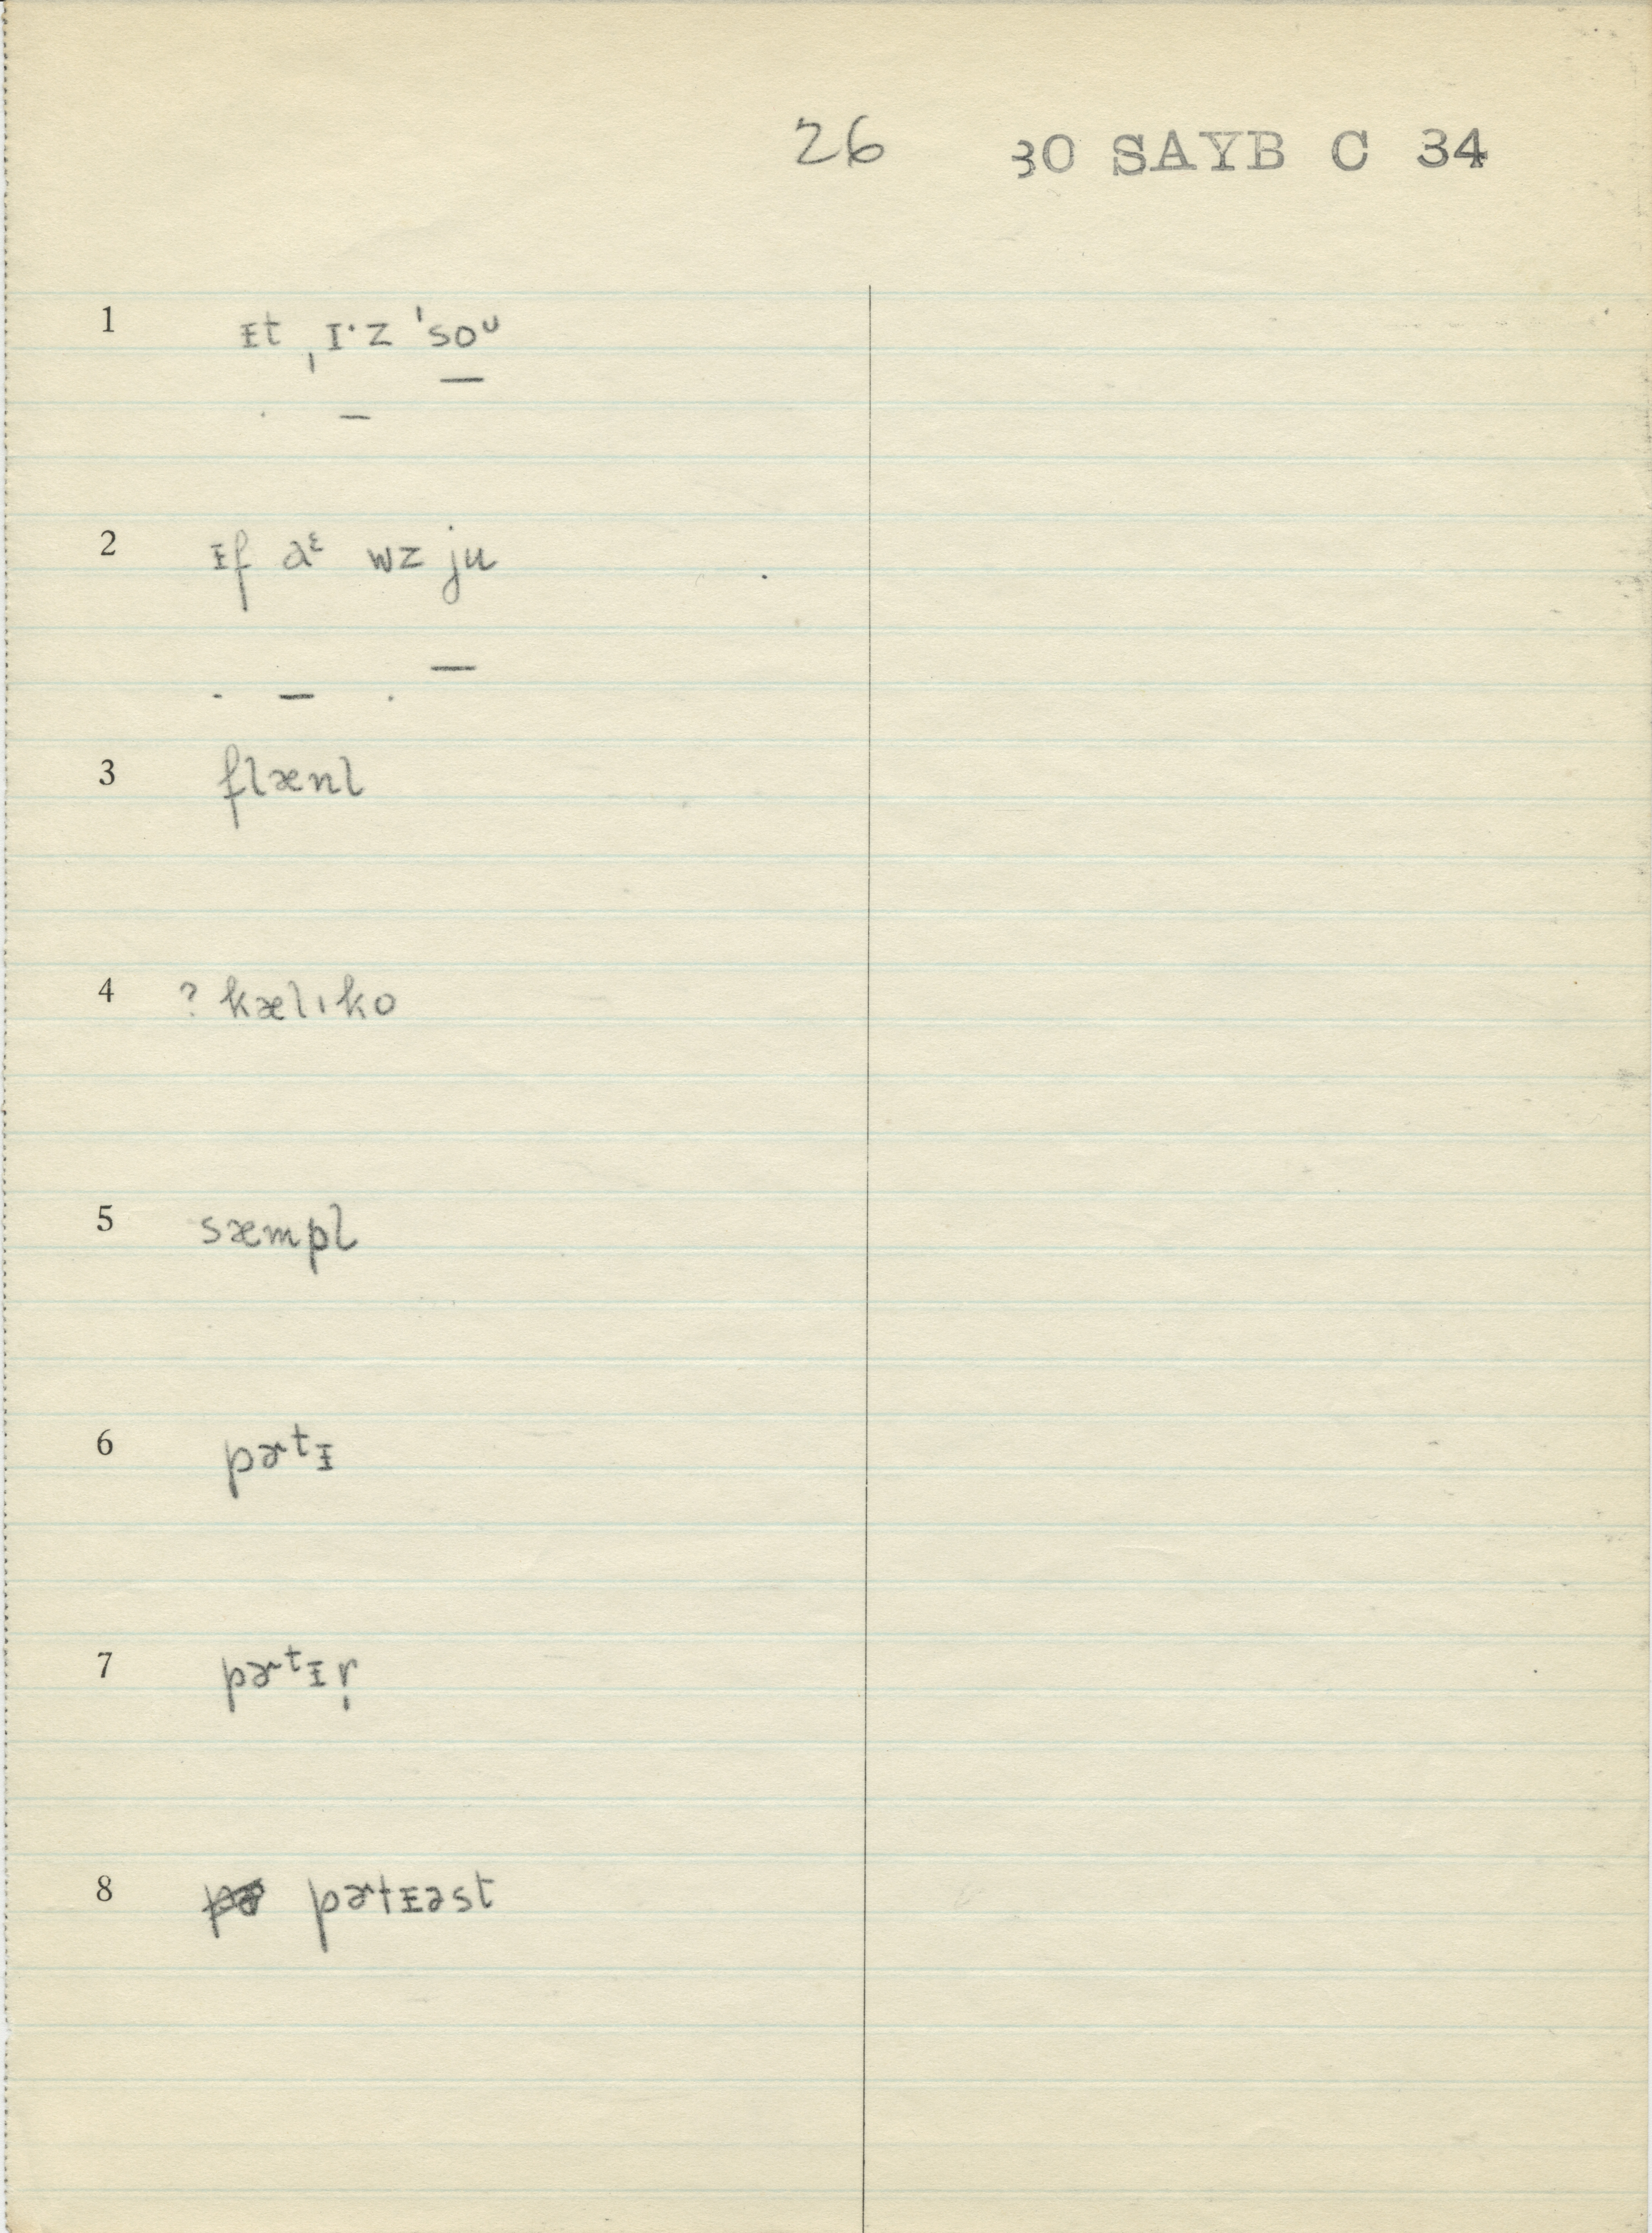 26 30 SAYB C 34
1 ᵻt ˌɪ·z ˈsoᵁ
2 ᵻf aᵋ wz ju
3 flænl
4 ? kælɩko
5 sæmpl
6 pɚtᵻ
7 pɚtᵻr̩
8 pɚtᵻəst